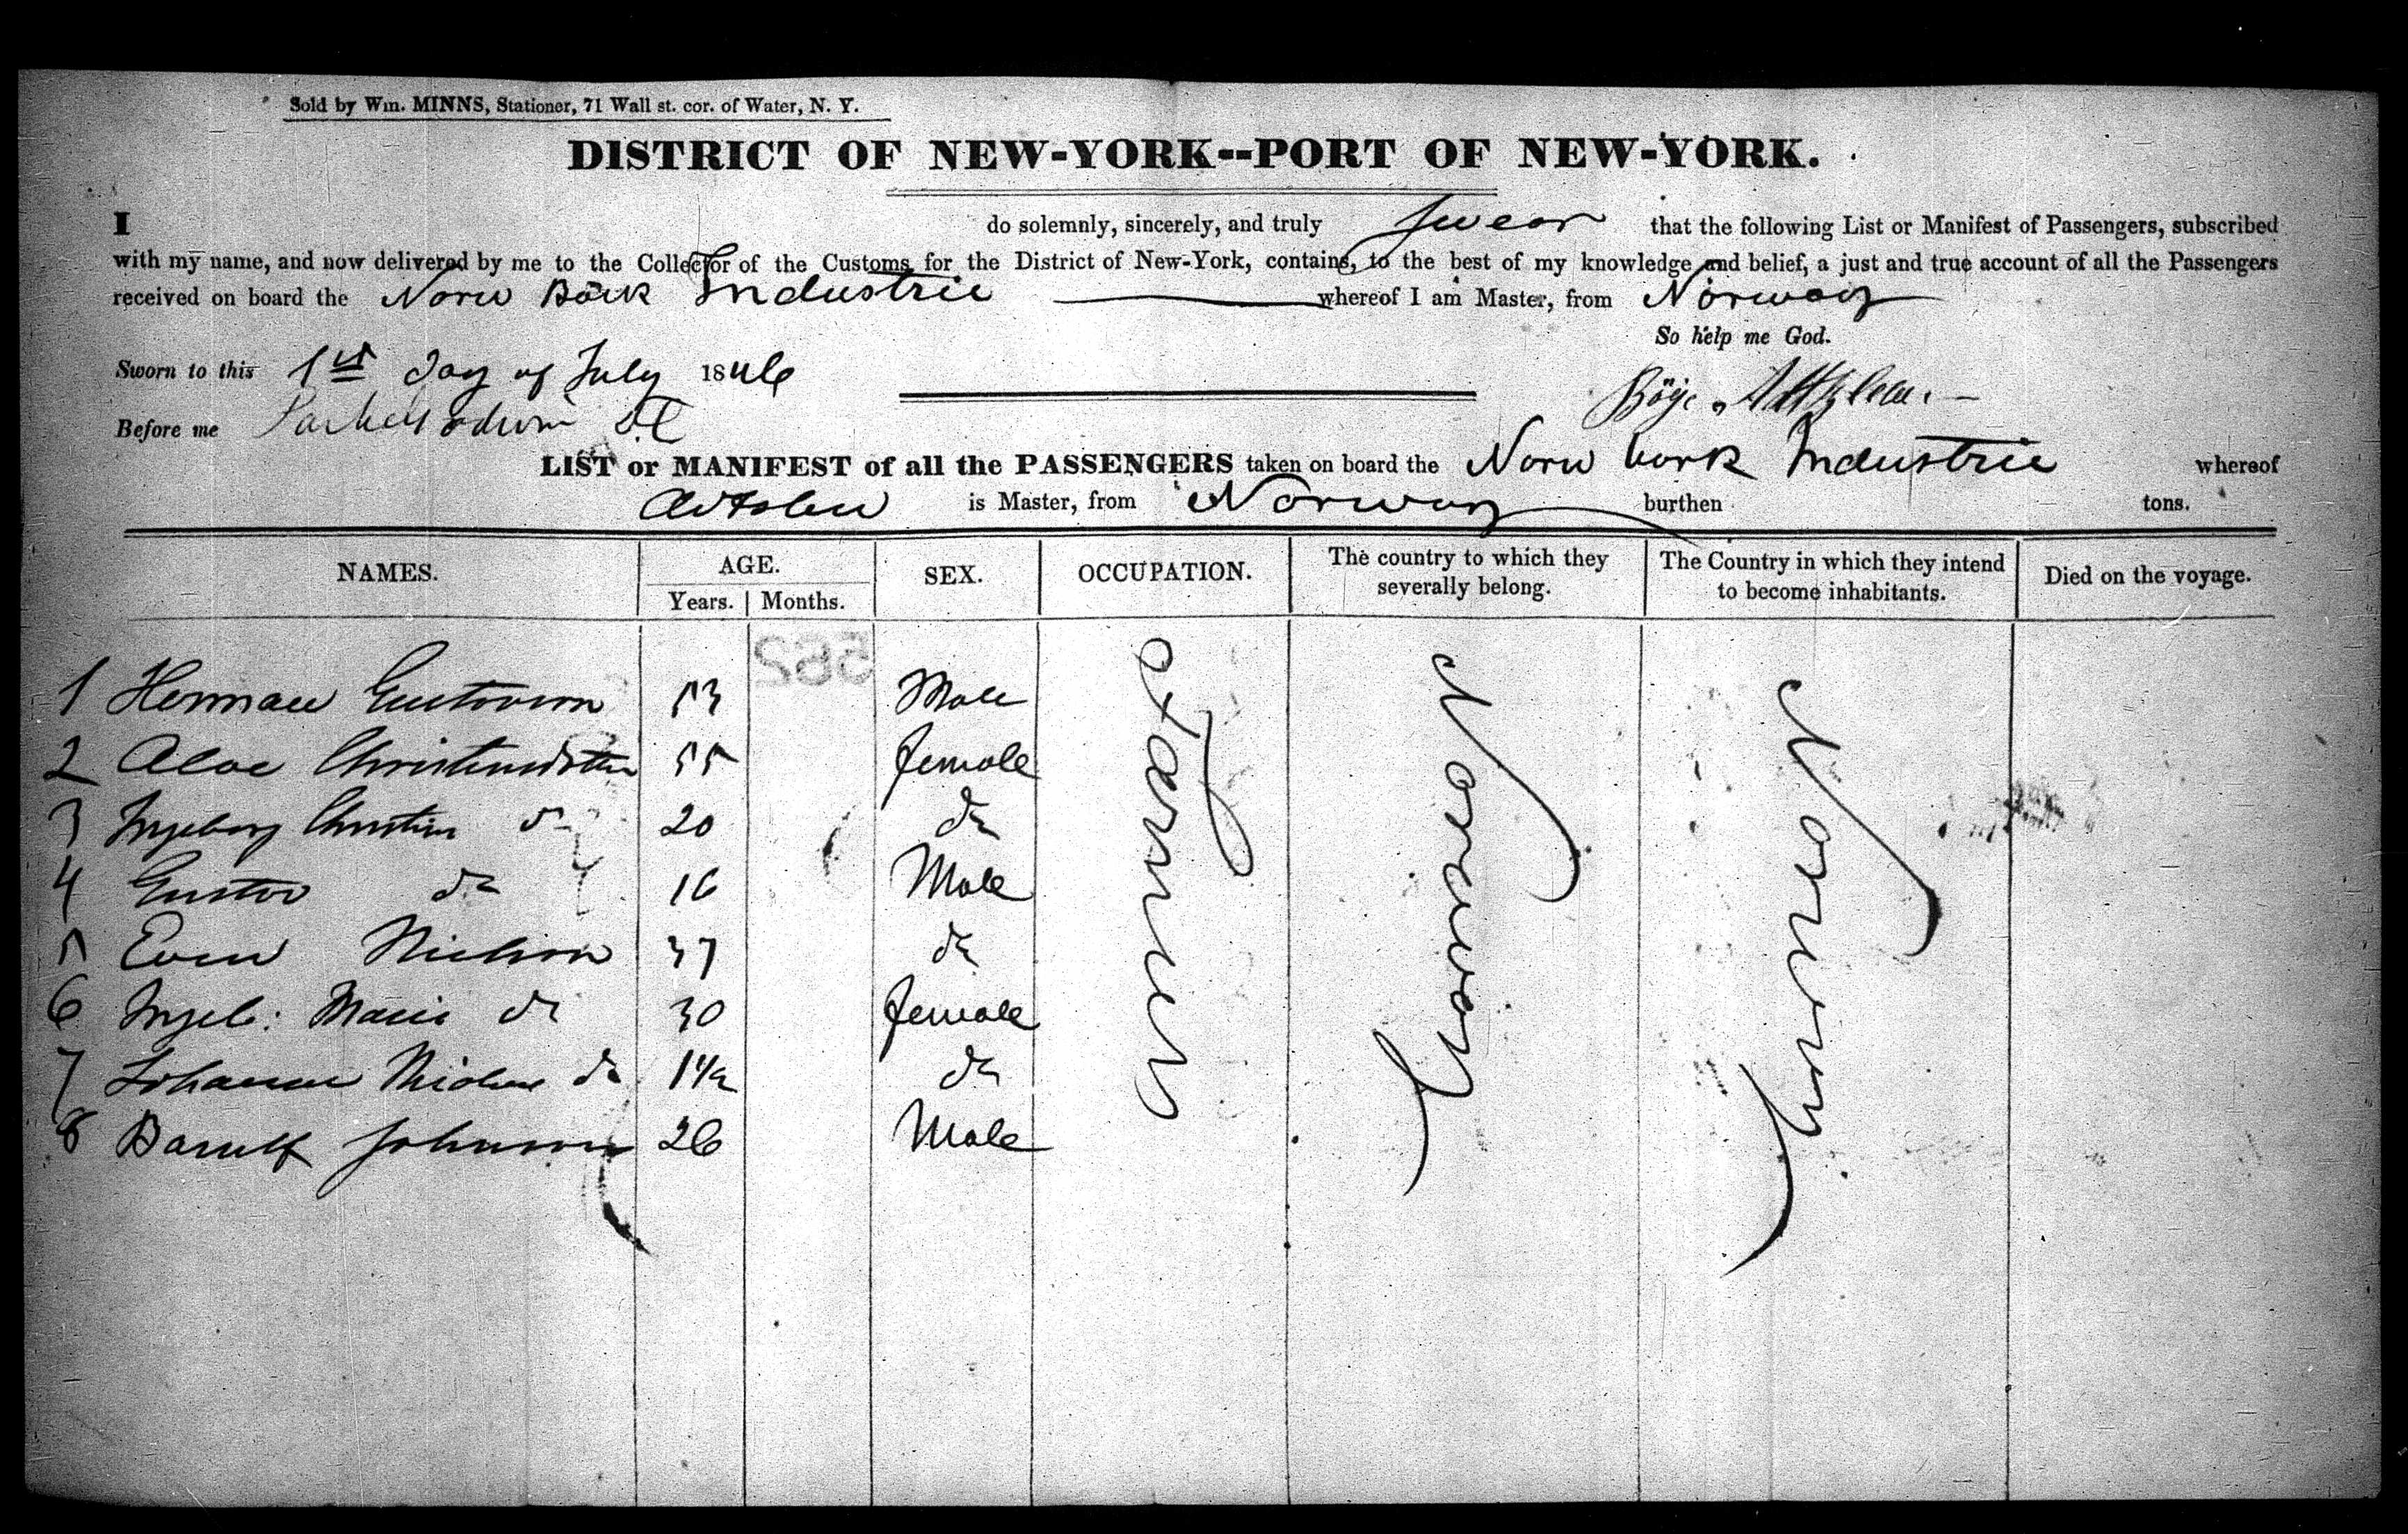 Sold by Wm. MINNS, Stationer, 71 Wall st. cor. of Water, N. Y.
DISTRICT OF NEW-YORK--PORT OF NEW-YORK.
I do solemnly, sincerely, and truly swear that the following List or Manifest of Passengers, subscribed
with my name, and now delivered by me to the Collector of the Customs for the District of New-York, contains, to the best of my knowledge and belief, a just and true account of all the Passengers
received on board the Norw Bark Industrie whereof I am Master, from Norway
So help me God.
Sworn to this 1st day of July 1846
Before me
LIST or MANIFEST of all the PASSENGERS taken on board the Norw bark Industrie whereof
is Master, from Norway burthen tons.
NAMES. AGE. SEX. OCCUPATION. The country to which they severally belong. The Country in which they intend to become inhabitants. Died on the voyage.
Years. Months.
582
1 Herman Gustavson 53 Male
2 Christensdatter 55 female
3 Ingeborg Christine do 20 do
4 Gustav do 16 Male
5 Even Nielson 37 do
6 Ingeb: Marie do 30 female
7 do 1½ do
8 Johnson 26 Male
Farmer
Norway
Norway